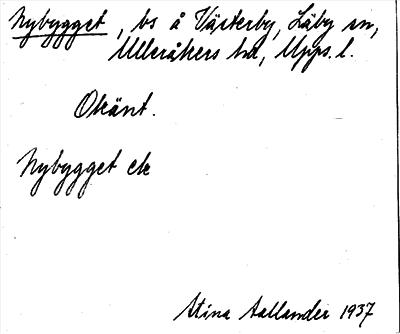 Nybygget, bs å Västerby, Läby sn,
Ulleråkers hd, Upps. l.
Okänt.
Nybygget ek
Stina Aallander 1937